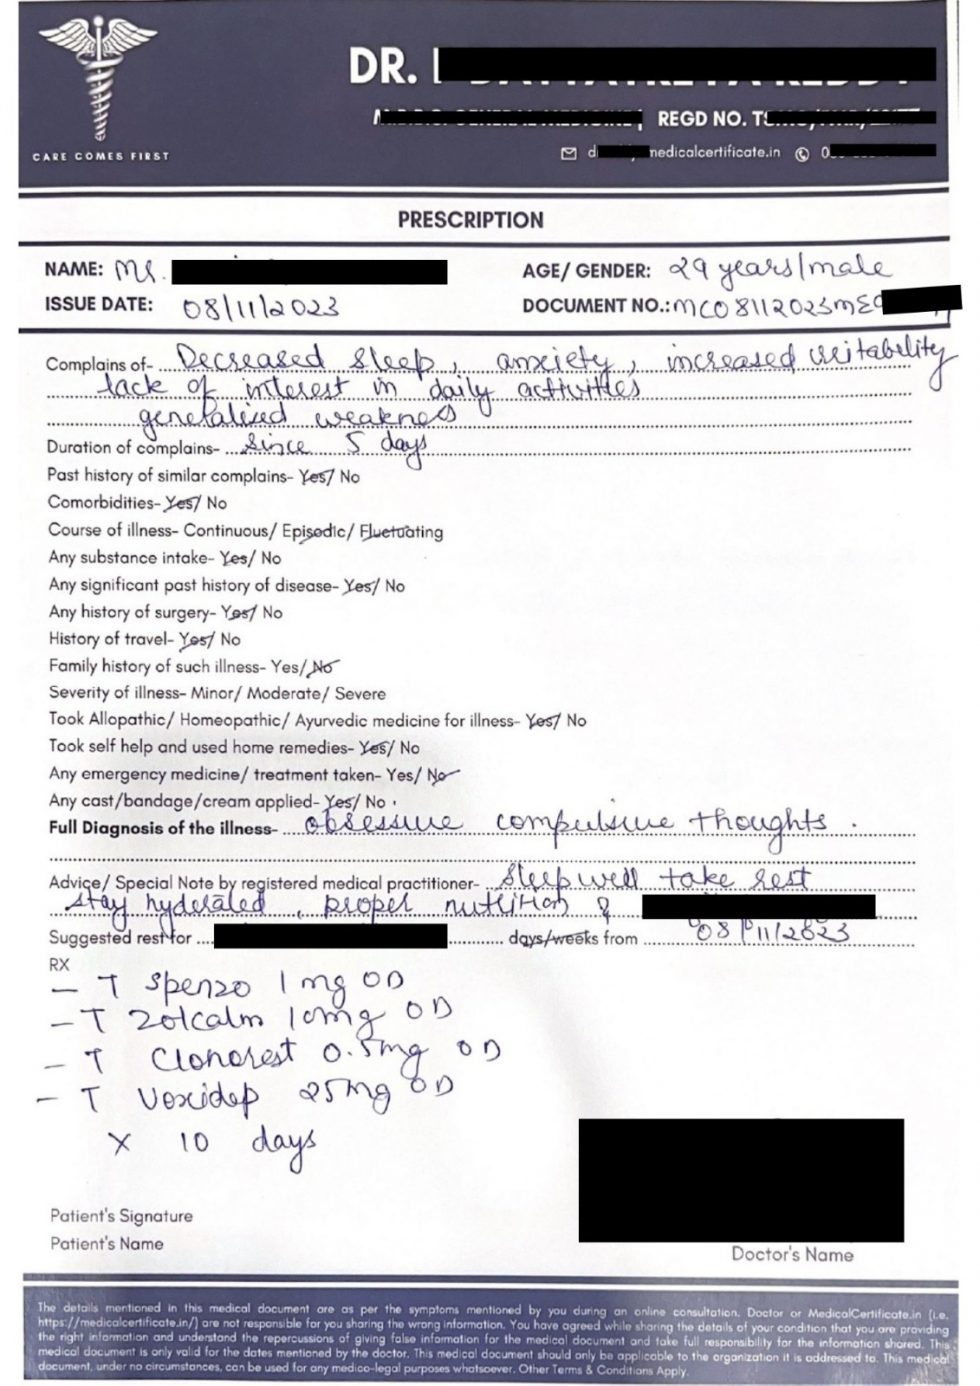 CARE COMES FIRST
DR.
REGD NO.
medicalcertificate.in
PRESCRIPTION
NAME: Mr. AGE/ GENDER: 29 years/male
ISSUE DATE: 08/11/2023 DOCUMENT NO.: MC08112023ME
Complains of- Decreased sleep, anxiety, increased irritability
lack of interest in daily activities
generalised weakness
Duration of complains- since 5 days
Past history of similar complains- Yes/ No
Comorbidities- Yes/ No
Course of illness- Continuous/ Episodic/ Fluctuating
Any substance intake- Yes/ No
Any significant past history of disease- Yes/ No
Any history of surgery- Yes/ No
History of travel- Yes/ No
Family history of such illness- Yes/ No
Severity of illness- Minor/ Moderate/ Severe
Took Allopathic/ Homeopathic/ Ayurvedic medicine for illness- Yes/ No
Took self help and used home remedies- Yes/ No
Any emergency medicine/ treatment taken- Yes/ No
Any cast/bandage/cream applied- Yes/ No
Full Diagnosis of the illness- obsessive compulsive thoughts.
Advice/ Special Note by registered medical practitioner- sleep well take rest
stay hyderated, proper nutrition &
Suggested rest for days/weeks from 08/11/2023
RX
- T Spenzo 1mg OD
- T Zolcalm 10mg OD
- T Clonorest 0.5mg OD
- T Voxidep 25mg OD
x 10 days
Patient's Signature
Patient's Name
Doctor's Name
The details mentioned in this medical document are as per the symptoms mentioned by you during an online consultation. Doctor or MedicalCertificate.in (i.e.
https://medicalcertificate.in/) are not responsible for you sharing the wrong information. You have agreed while sharing the details of your condition that you are providing
the right information and understand the repercussions of giving false information for the medical document and take full responsibility for the information shared. This
medical document is only valid for the dates mentioned by the doctor. This medical document should only be applicable to the organization it is addressed to. This medical
document, under no circumstances, can be used for any medico-legal purposes whatsoever. Other Terms & Conditions Apply.